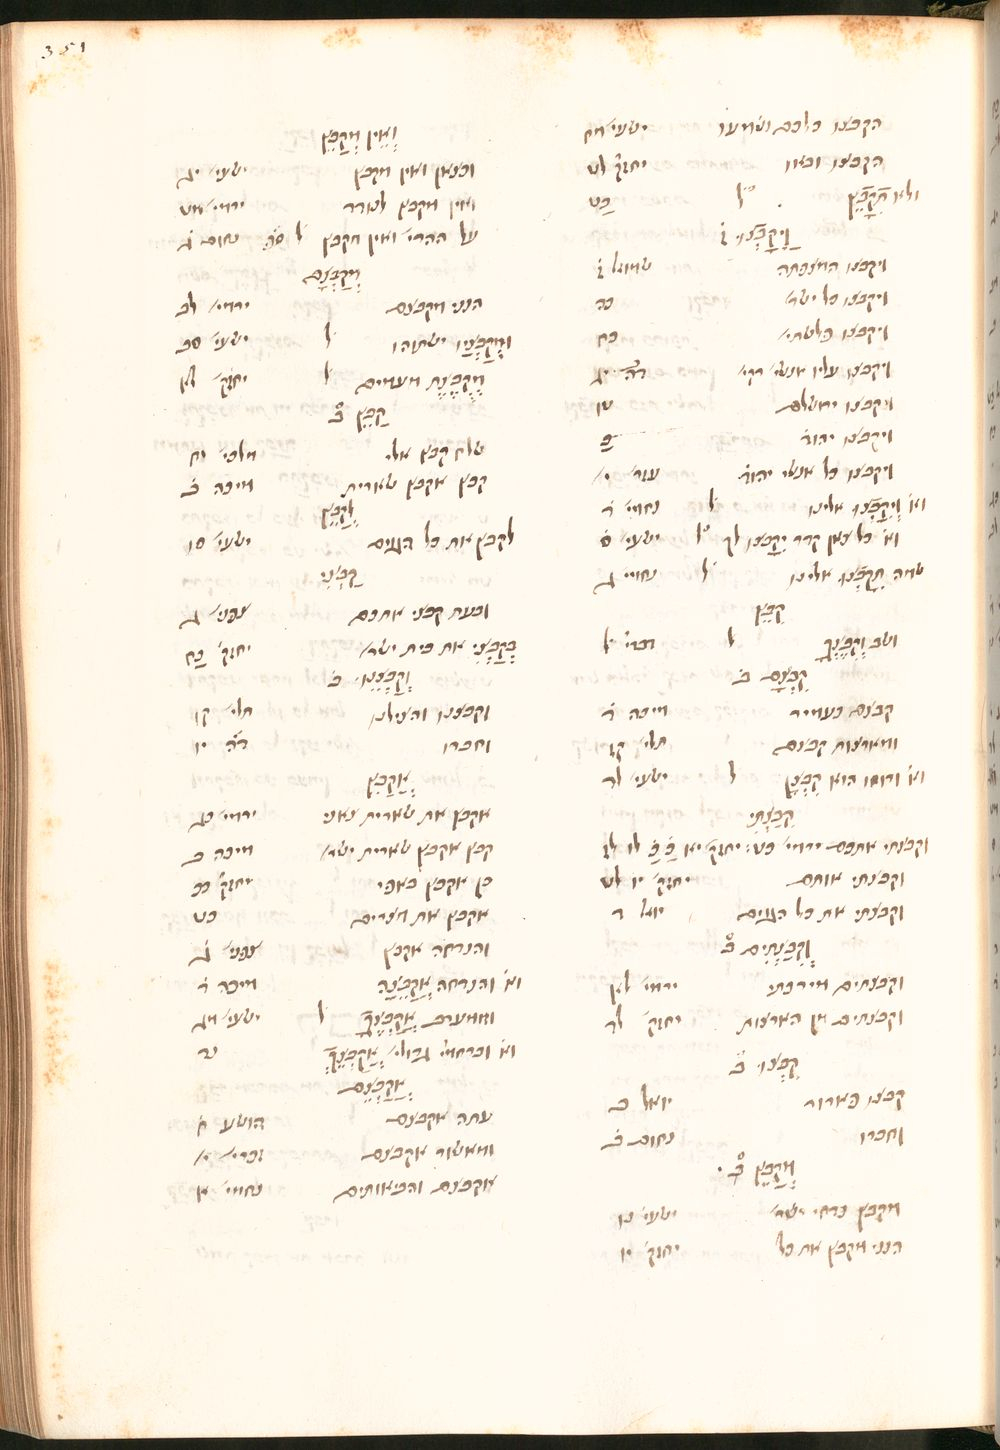 351
הקבצו כולכם ושמעו ישעי׳ מח
הקבצו ובאו יחזק׳ לט
ולא תִקָבֵץ ל׳ כט
וַיִקְבְּצוּ ז׳
ויקבצו המצפתה שמואל ז׳
ויקבצו כל ישר׳ כה
ויקבצו פלשתי׳ כח
ויקבצו עליו אנשי׳ רקי׳ דה׳ יג
ויקבצו ירושלם טו
ויקבצו יהוד׳ כ
ויקבצו כל אנשי יהוד׳ עזר׳ י׳
וא׳ וַיִקָבְצוּ אלינו ל׳ נחמי׳ ד
וא׳ כל צאן קדר יִקָבְצוּ לך ל׳ ישעי׳ ס׳
שמה תִקָבְצוּ אלינו ל׳ נחמי׳ ד
קִבֵּץ
ושב וְקִבֶּצְךָ ל׳ דברי׳ ל׳
קִבְּצָם ב׳
קבצם כעמיר מיכה ד׳
ומארצות קבצם תלי׳ קז
וא׳ ורוחו הוא קִבְּצָן ל׳ ישעי׳ לד
קִבַּצְתִי
וקבצתי אתכם ירמי׳ כט׳ יחזק׳ יא כ׳ כ׳ לו לז
וקבצתי אותם יחזק׳ יו לט
וקבצתי את כל הגוים יואל ד
וְקִבַּצְתִים ב׳
וקבצתים מירכתי ירמי׳ לא
וקבצתים מן הארצות יחזק׳ לד
קִבְּצוּ ב׳
קבצו פארור יואל ב
וחברו נחום ב׳
מְקַבֵּץ ב׳
מקבץ נדחי ישר׳ ישעי׳ נו
הנני מקבץ את כל יחזק׳ יו
וְאֵין מְקַבֵּץ
וכצאן ואין מקבץ ישעי׳ יג
ואין מקבץ לנודד ירמי׳ מט
על ההרי׳ ואין מקבץ ל׳ סה׳ נחום ג׳
מְקַבְּצָם
הנני מקבצם ירמי׳ לב
וּמְקַבְּצָיו ישתוהו ל׳ ישעי׳ סב
מְקֻבֶּצֶת מעמים ל׳ יחזק׳ לח
קַבֵּץ ב׳
שלח קבץ אלי מלכי׳ יח
קבץ אקבץ שארית מיכה ב׳
לְקַבֵּץ
לקבץ את כל הגוים ישעי׳ סו
קַבְּצִי
ובעת קבצי אתכם צפני׳ ג
בְּקַבְּצִי את בית ישר׳ יחזק׳ כח
וְקַבְּצֵנוּ ב׳
וקבצנו והצילנו תלי׳ קו
וחברו דה׳ יו
אֲקַבֵּץ
אקבץ את שארית צאני ירמי׳ כג
קבץ אקבץ שארית ישר׳ מיכה ב
כן אקבץ באפי יחזק׳ כב
אקבץ את מצרים כט
והנדחה אקבץ צפני׳ ג׳
וא׳ והנדחה אֲקַבֵּצָה מיכה ד׳
וממערב אֲקַבְּצֶךָּ ל׳ ישעי׳ מג
וא׳ וברחמי׳ גדולי׳ אֲקַבְּצֵךְ נד
אֲקַבְּצֵם
עתה אקבצם הושע ח׳
ומאשור אקבצם זכרי׳ י׳
אקבצם והביאותים נחמי׳ א